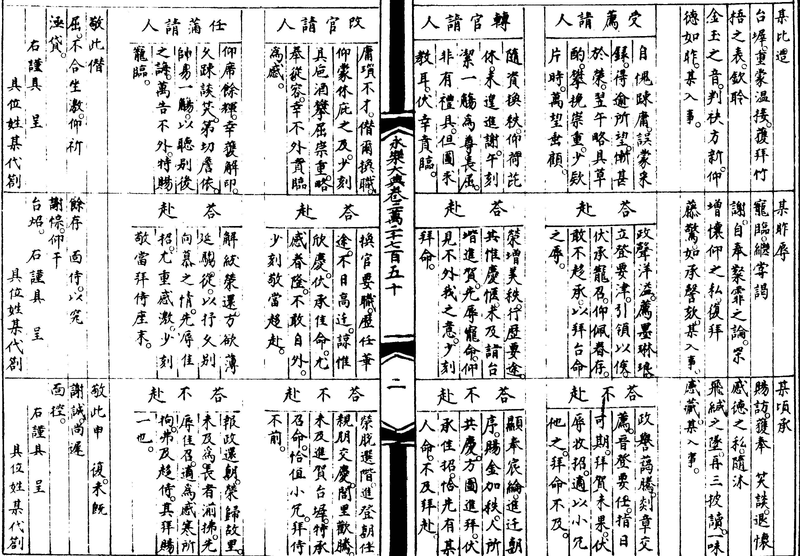 某比造
台墀重蒙温接獲拜竹
梧之表欽聆
金玉之音判袂方新仰
德如昨某入事
受薦請人
自愧踈庸誤蒙采
錄得逾所望慚甚
於榮翌午略具草
酌攀挽崇重少欵
片時萬望垂顧
轉官請人
隨資換秩仰荷託
休未遑進謝午刻
潔一觴為尊長屈
非有禮具但圖承
教耳伏幸賁臨
改官請人
庸瑣不才偕爾換職
仰蒙休庇之及少刻
具巵酒攀屈崇重略
奉從容幸不外賁臨
為感
任滿請人
仰席餘輝幸獲解印
久踈談笑弟切詹依
帥易一觴以聽別後
之誨萬告不外特賜
寵臨
敬此偕
屈不合坐激仰祈
貸
右謹具呈
具位姓某代劄
某昨辱
寵臨繼寧謁
謝自奉絮霏之論采
增懷仰之私復拜
藤驚如承謦欬某入事
答赴
政聲洋溢薦墨琳琅
立登要津引領以俟
伏承寵召仰佩眷存
敢不趍承以拜台命
之辱
答赴
榮增美秩行歷要途
共惟慶愜未及詣台
堦進賀先辱寵命仰
見不外我之意少刻
拜命
答赴
換官要職歷任華
途不日高迁諒惟
欣慶伏承佳命尤
感眷隆不敢自外
少刻敬當趍赴
答赴
解紱榮還方欲薄
迓騶從以抒久別
向慕之情先辱佳
招尤重感激少刻
敬當拜侍座末
餘存面侍以究
謝悰仰干
台炤右謹具呈
具位姓某代劄
某頃承
賜訪獲奉笑談退懷
感德之私隨沐
飛緘之墜再三披讀味
感藏某入事
答不赴
政譽藹騰剡章交
薦晋登要任指日
可期拜賀未果伏
辱收招適以小冗
他之拜命不及
答不赴
顯奉宸綸進迁朝
序賜金加秩人所
共慶方圖進拜伏
承佳招恰先有某
人命不及拜赴
答不赴
榮脫選階進登朝任
親朋交慶閭里歡騰
未及進賀台墀特承
召命恰值小冗拜侍
不前
答不赴
報政還朝榮歸故里
未及為畏者湔拂先
辱佳召適為感寒所
拘弗及趍侍真拜賜
一也
敬此申復未既
謝誠尚遲
面控
右謹具呈
具位姓某代劄
永樂大典卷二萬二千七百五十
二